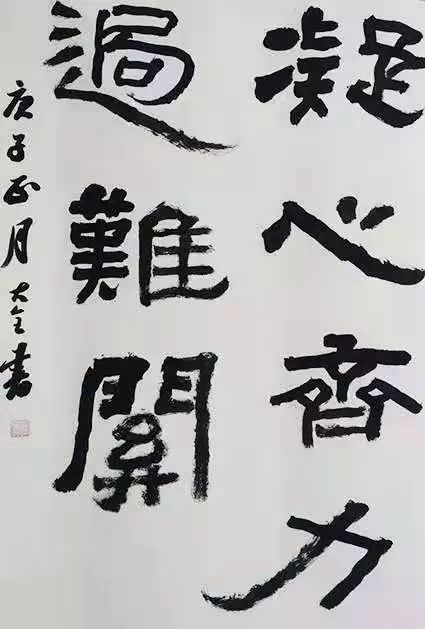 凝心齊力
過難關
庚子正月大全書